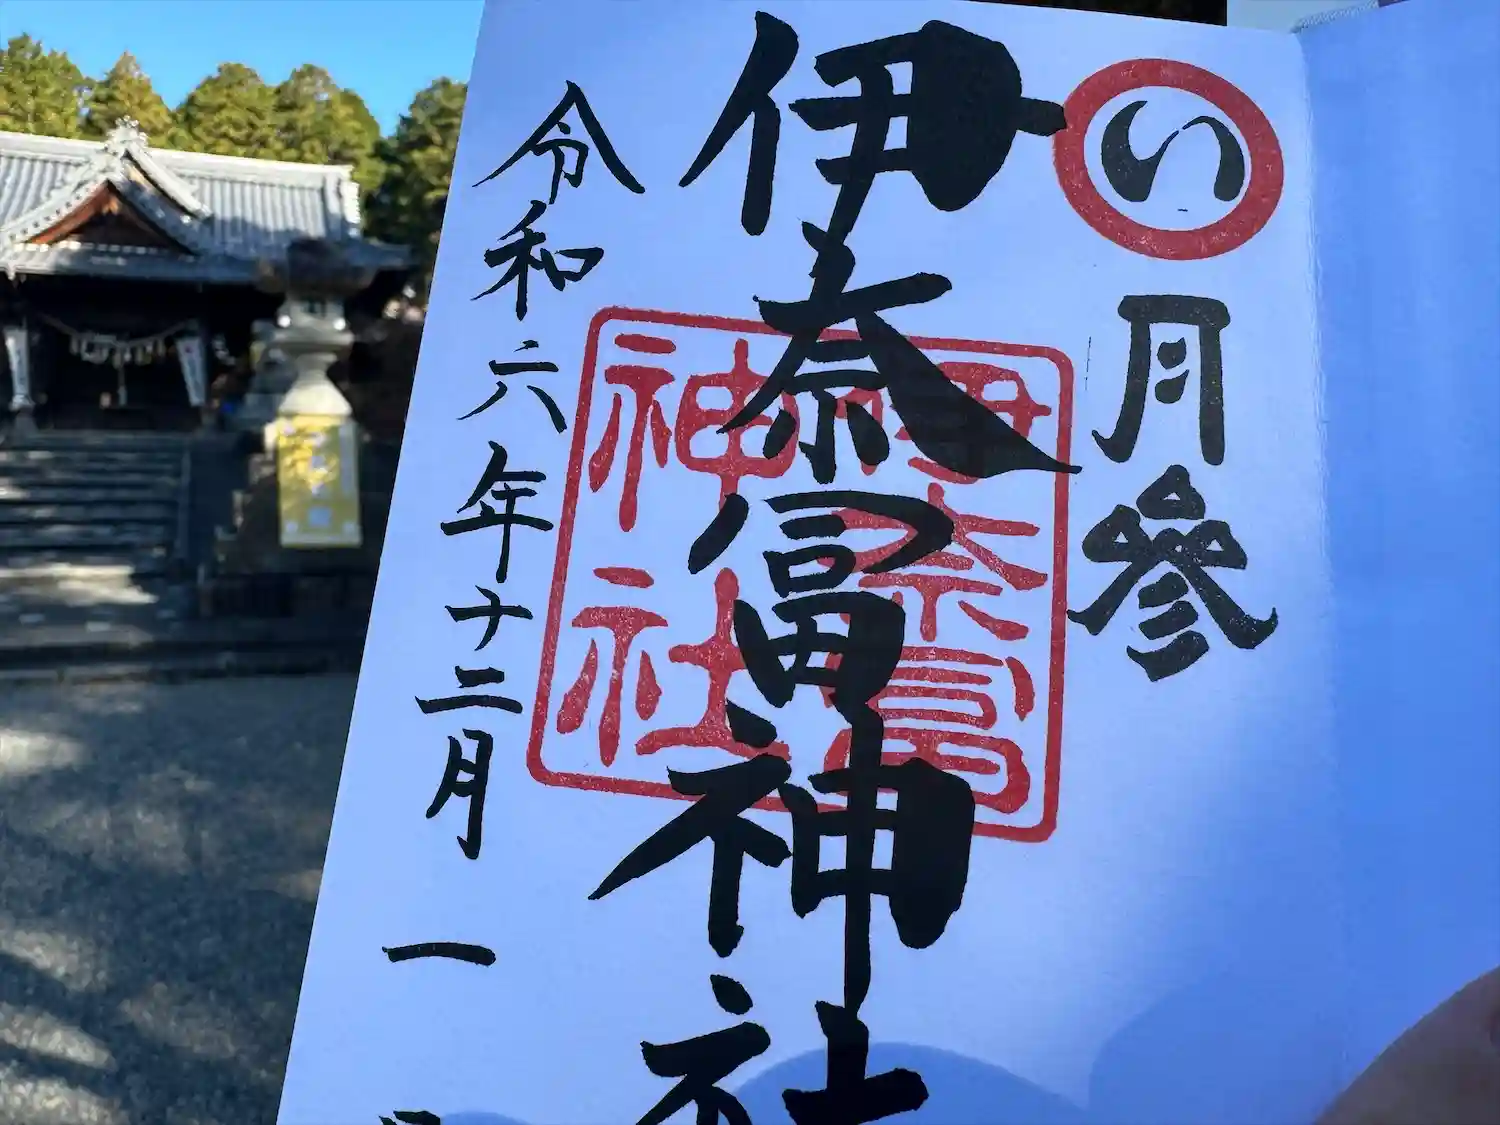 い
月參
伊奈冨神社
伊奈冨
神社
令和六年十二月一